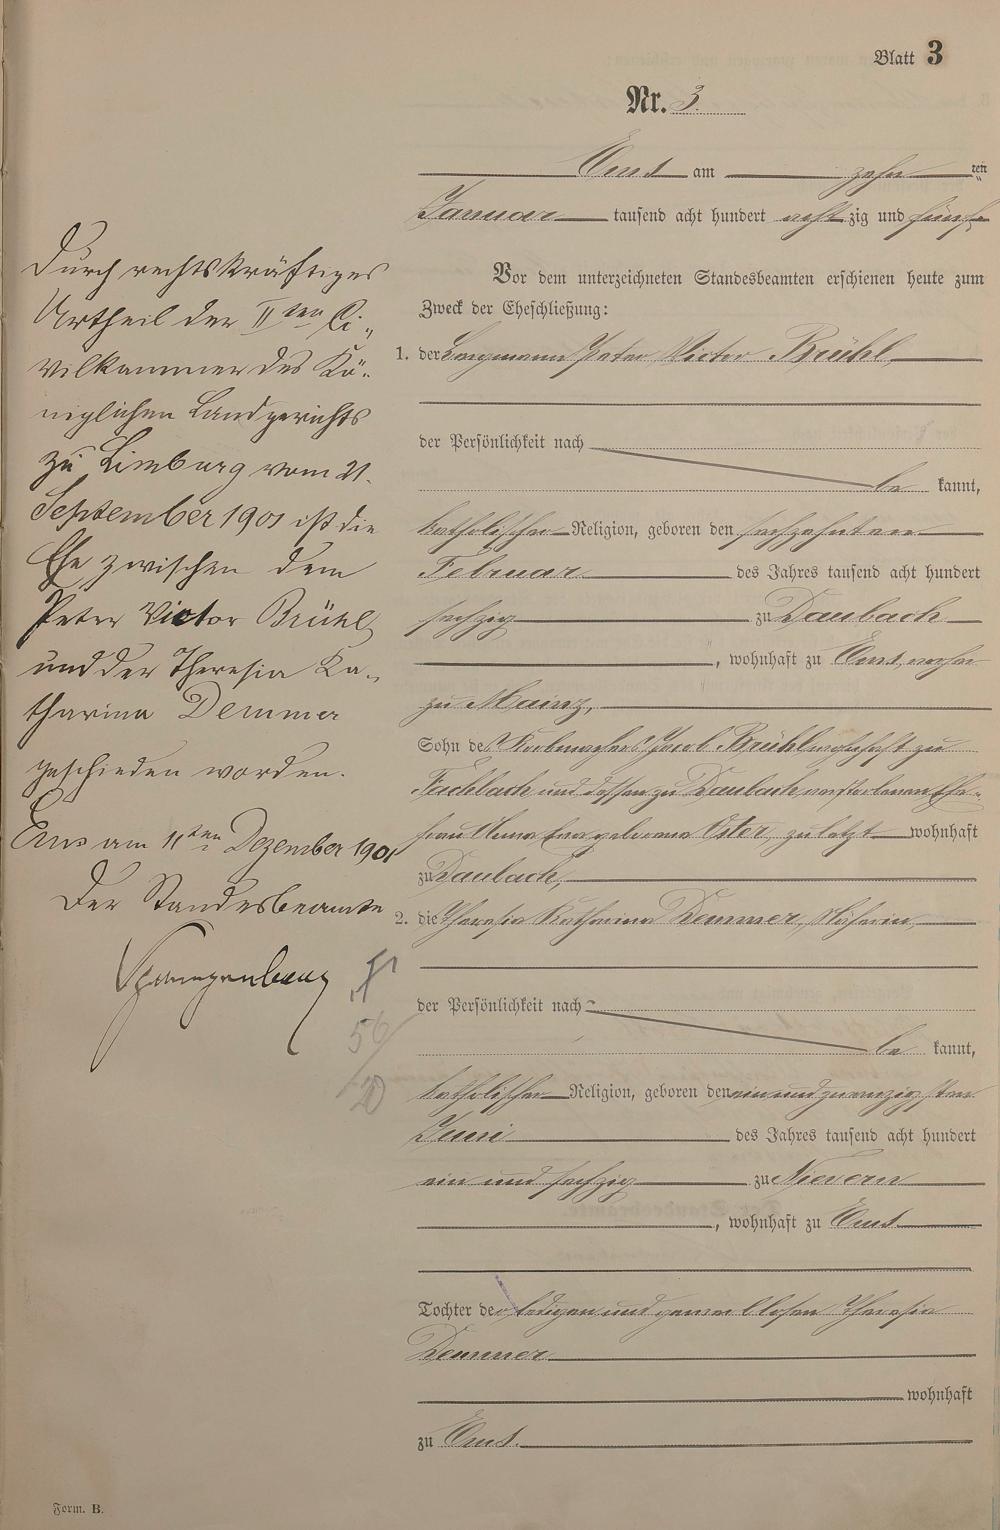 Blatt 3
Nr. 3.
Ems am zehn ten
Januar tausend acht hundert acht zig und fünf
Vor dem unterzeichneten Standesbeamten erschienen heute zum
Zweck der Eheschließung:
1. der Bergmann Peter Victor Brühl,
der Persönlichkeit nach
be kannt,
katholischer Religion, geboren den sechzehnten
Februar des Jahres tausend acht hundert
sechzig zu Daubach
, wohnhaft zu Ems, vorher
zu Mainz,
Sohn des Korbmachers Jacob Brühl wohnhaft zu
Fachbach und dessen zu Daubach verstorbenen Ehe-
frau Anna Eva geborene Oster, zuletzt wohnhaft
zu Daubach,
2. die Theresia Katharina Demmer, Näherin,
der Persönlichkeit nach
be kannt,
katholischer Religion, geboren den ein und zwanzigsten
Juni des Jahres tausend acht hundert
ein und sechzig zu Nievern
, wohnhaft zu Ems
Tochter der ledigen und gewerblosen Theresia
Demmer
wohnhaft
zu Ems.
Durch rechtskräftiges
Urtheil der II ten Ci-
vilkammer des Kö-
niglichen Landgerichts
zu Limburg vom 21.
September 1901 ist die
Ehe zwischen dem
Peter Victor Brühl
und der Theresia Ka-
tharina Demmer
geschieden worden.
Ems am 11ten Dezember 1901
Der Standesbeamte
Spangenberg
56
20
Form. B.